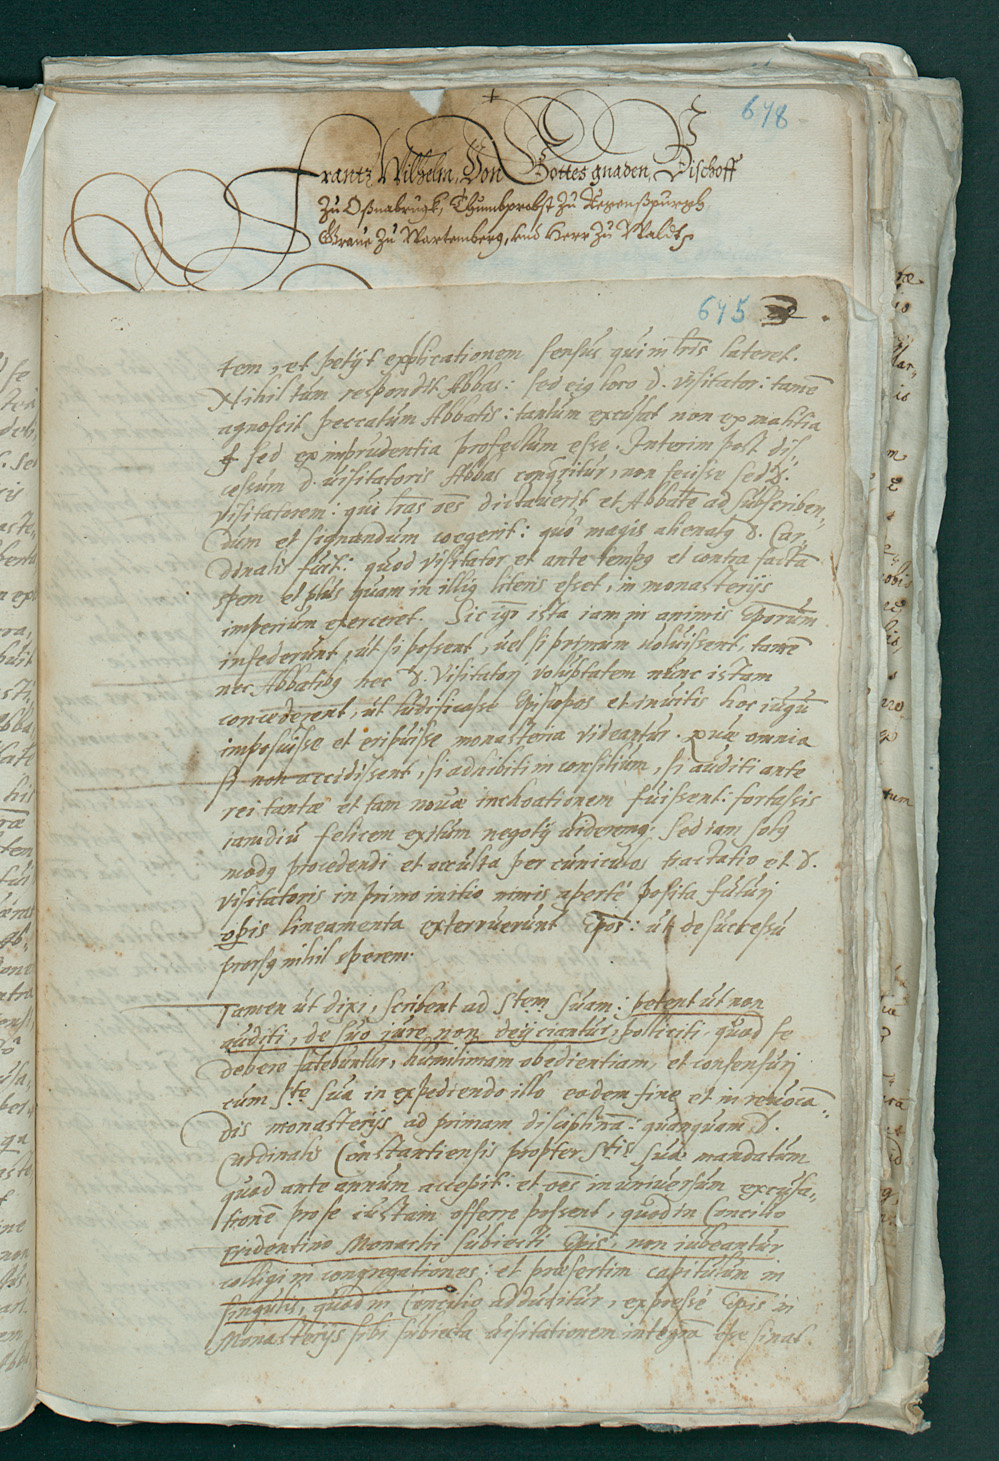 678
Frantz Wilhelm, Von Gottes gnaden, Bischoff
Zu Oßnabrugk, Thumbprobst Zu Regenßpurgh,
Graue Zu Wartemberg, und Herr Zu Waldt
675
tem, et petijt explicationem sensus qui in lr̄is lateret.
Nihil tum respondit Abbas: sed eiꝯ loco d. visitator: tamē
agnoscit peccatum Abbatis: tantum excusat non ex malitia
sed ex imprudentia profectum esse. Interim post dis-
cessum d. visitatoris Abbas conqueritur, non fecisse sed d.
Visitatorem: qui lr̄as oēs dictauerit et Abbatē ad subscriben-
dum et signandum coegerit: quo magis alienatꝯ d. Car-
dinalis fuit: quod visitator et ante tempꝯ et contra factā
spem et plus quam in illiꝯ literis esset, in monasterijs
imperium exerceret. Sic igr̄ ista iam in animis Ep̄orum
insederunt, ut si possent, uel si primum uoluissent, tamē
nec Abbatibꝯ hec d. Visitatori voluptatem nunc istam
concederent, ut ludificasse Episcopos et inuitis hoc iugū
imposuisse et eripuisse monasteria videantur. quæ omnia
si non accidissent, si adhibiti in consilium, si auditi ante
rei tantæ et tam nouæ inchoationem fuissent: fortassis
iamdiu felicem exitum negotij uideremꝯ. Sed iam solꝯ
modꝯ procedendi et occulta per cuniculos tractatio et d.
visitatoris in primo initio nimis aperte posita futuri
op̄is lineamenta exterruerunt Ep̄os: ut de successu
prorsꝯ nihil sperem.
Tamen ut dixi, scribent ad S.tem suam: petent ut non
auditi, de suo iure non deijciantur, polliciti, quod se
debere fatebuntur, humilimam obedientiam, et consensuri
cum S.te sua in expediendo illo eodem fine et in reuocā-
dis monasterijs ad primam disciplinā: quanquam d.
Cardinalis Constantiensis propter S.tis suæ mandatum
quod ante annum accepit: et oēs in uniuersum excusa-
tionē pro se iustam offerre possent, quod in Concilio
Tridentino Monachi subiecti Ep̄is, non iubeantur
colligi in congregationes: et præsertim capitulum in
singulis, quod in Concilio adducitur, expressè Ep̄is in
Monasterijs sibi subiecta uisitationem integrā esse sinat.